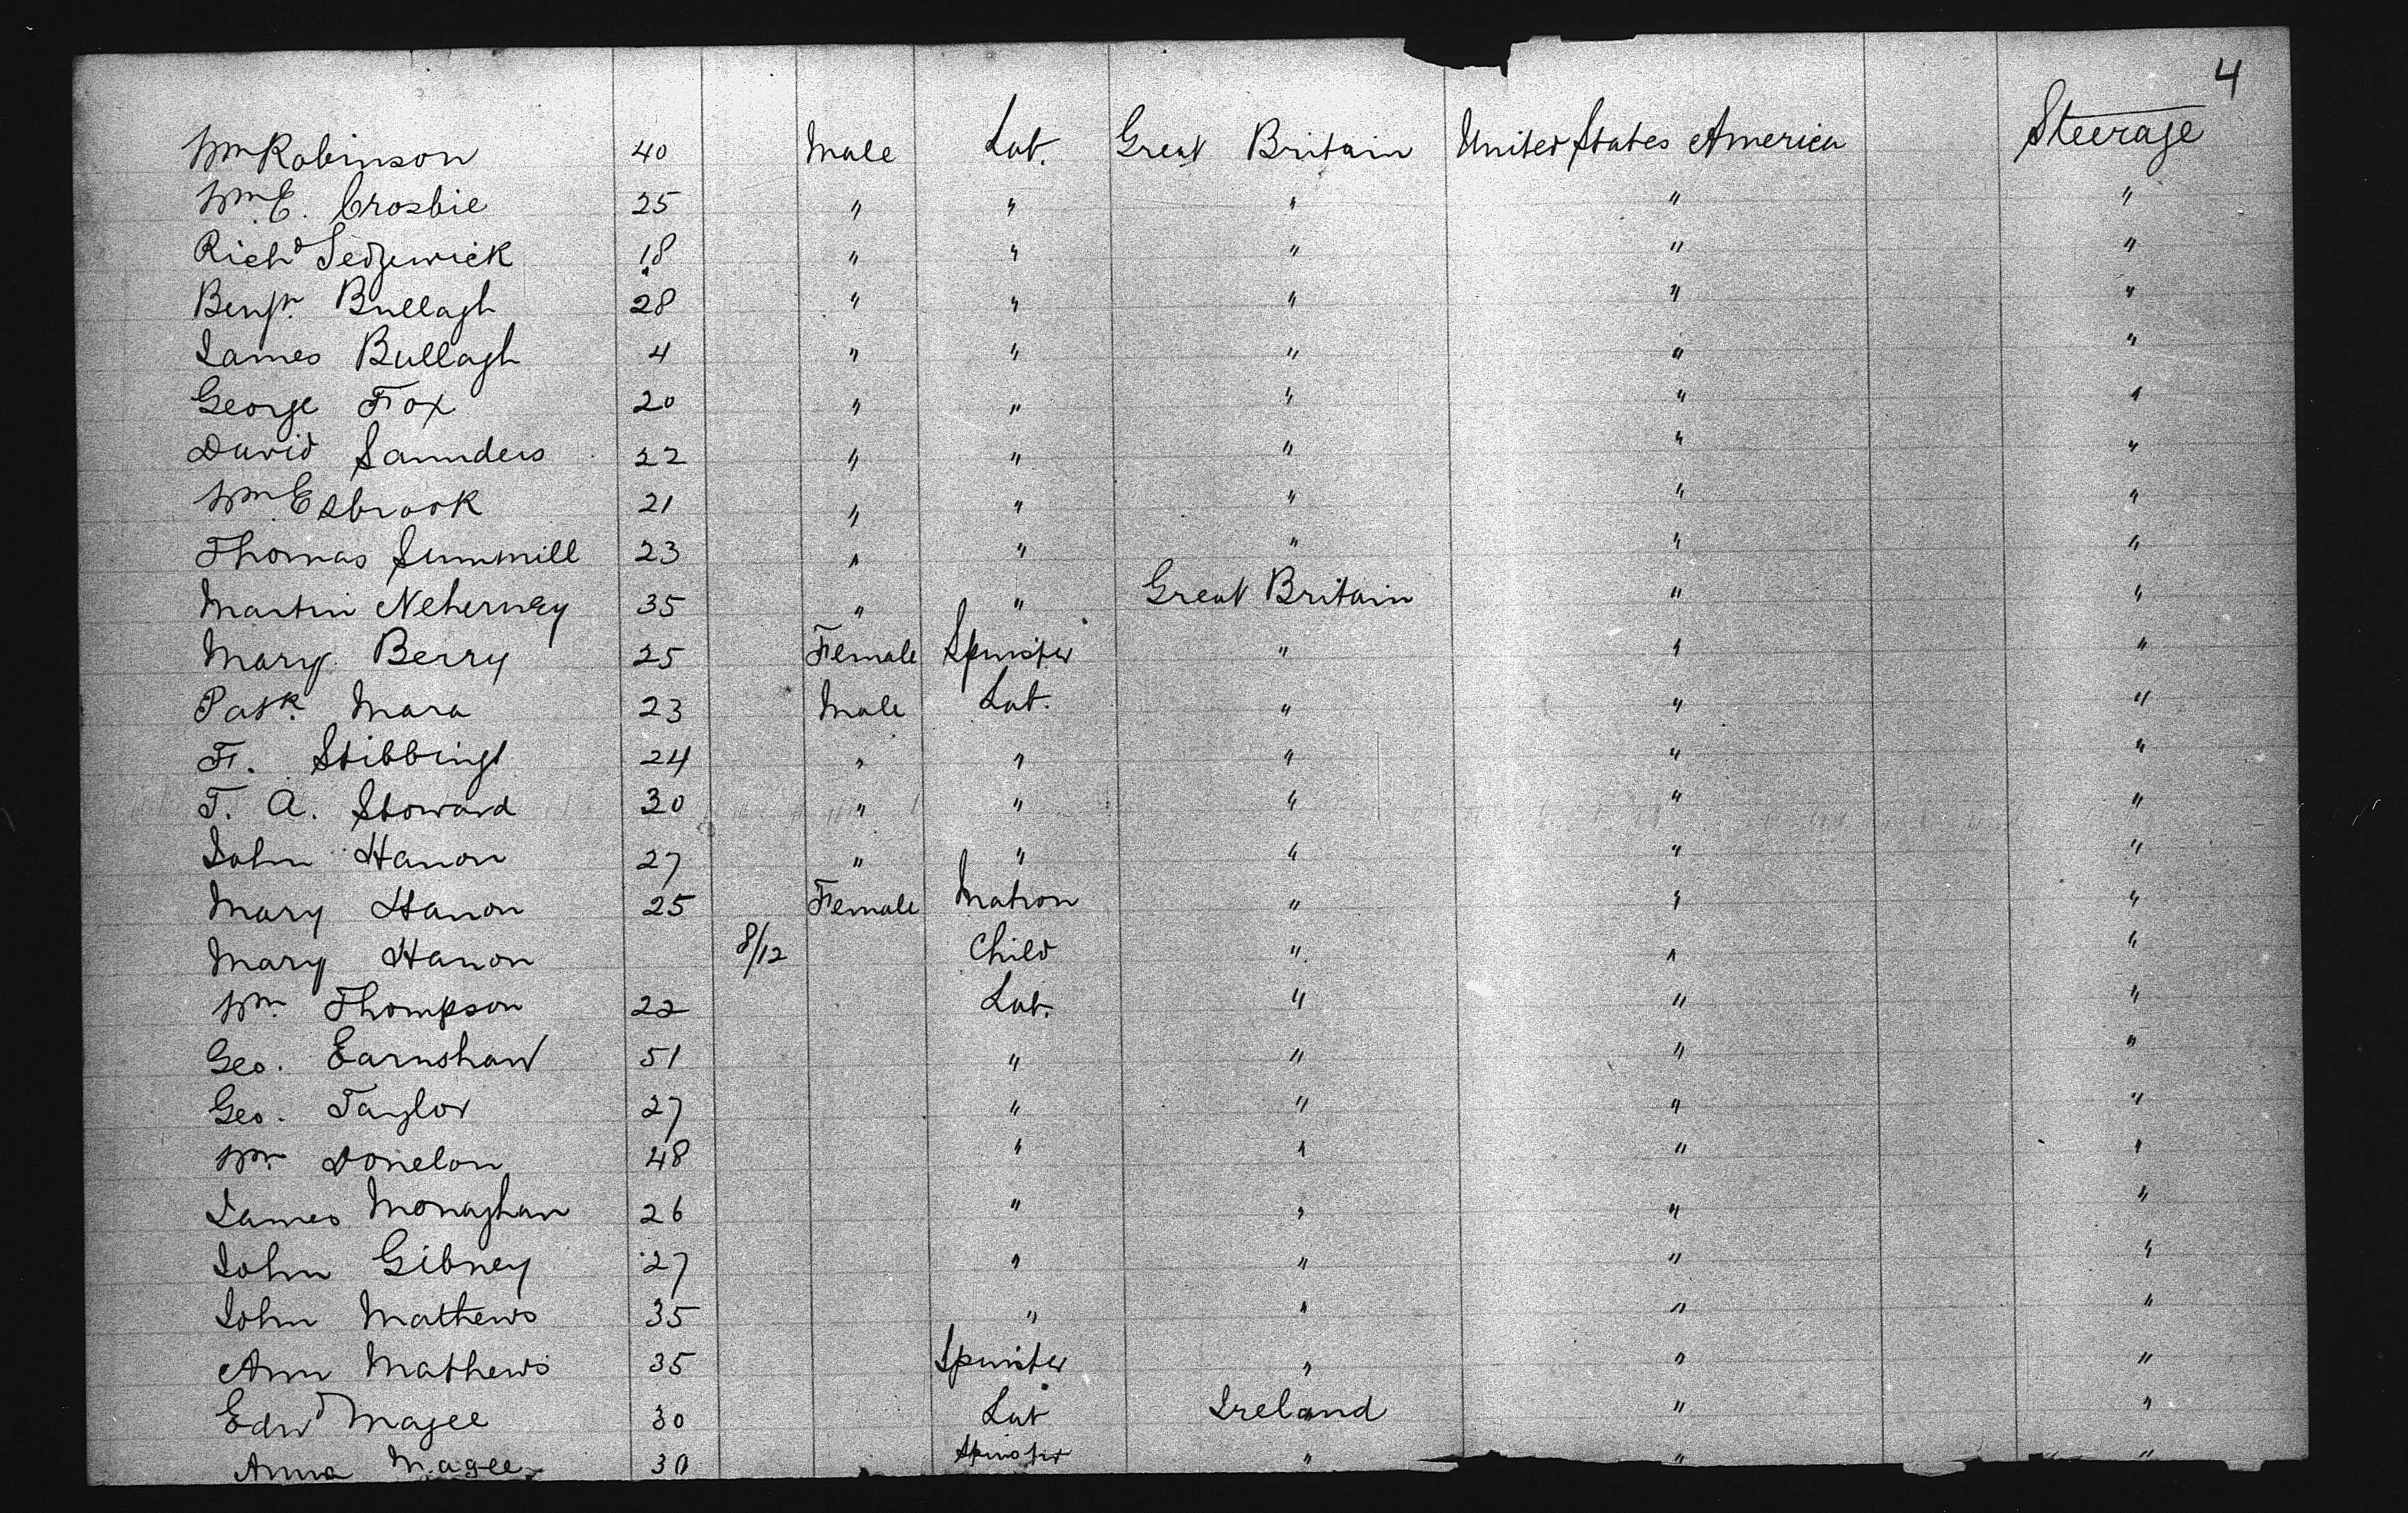 4
Wm Robinson 40 Male Lab. Great Britain United States America Steerage
Wm E. Crosbie 25 " " " " "
Richd Sedgewick 18 " " " " "
Benjn. Bullagh 28 " " " " "
James Bullagh 4 " " " " "
George Fox 20 " " " " "
David Saunders 22 " " " " "
Wm Esbrook 21 " " " " "
Thomas Summill 23 " " " " "
Martin Neherney 35 " " Great Britain " "
Mary Berry 25 Female Spinster " " "
Patk. Mara 23 Male Lab. " " "
F. Stibbings 24 " " " " "
T. A. Stoward 30 " " " " "
John Hanon 27 " " " " "
Mary Hanon 25 Female Matron " " "
Mary Hanon 8/12 Child " " "
Wm. Thompson 22 Lab. " " "
Geo. Earnshaw 51 " " " "
Geo. Taylor 27 " " " "
Wm. Donelon 48 " " " "
James Monaghan 26 " " " "
John Gibney 27 " " " "
John Mathews 35 " " " "
Ann Mathews 35 Spinster " " "
Edwd Magee 30 Lab Ireland " "
Anna Magee 30 Spinster " " "